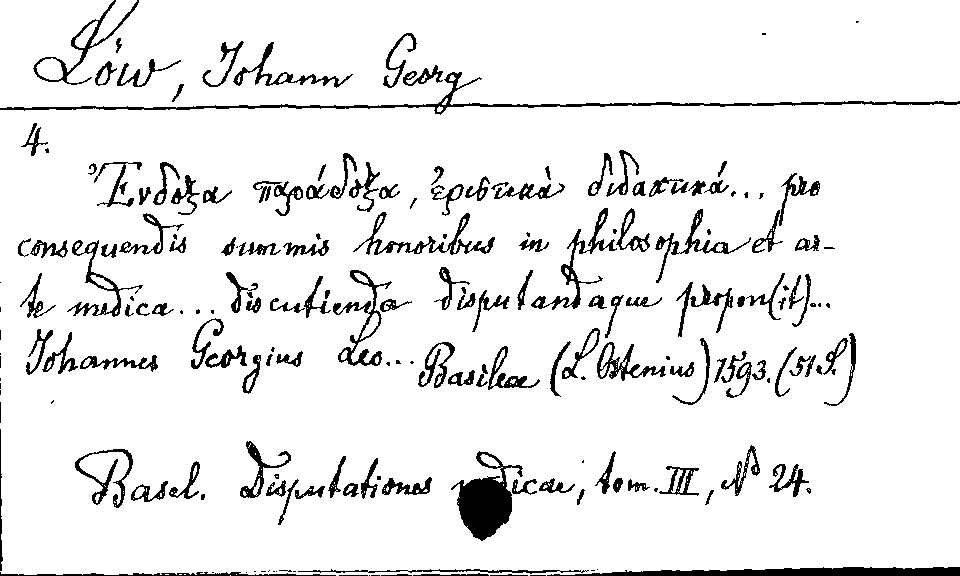 Löw, Johann Georg
4.
Ἔνδοξα παράδοξα, ἐριστικὰ διδακτικά... pro
consequendis summis honoribus in philosophia et ar-
te medica... discutienda disputandaque propon(it)...
Johannes Georgius Leo... Basileae (L. Ostenius) 1593. (51 S.)
Basel. Disputationes medicae, tom. III, No 24.